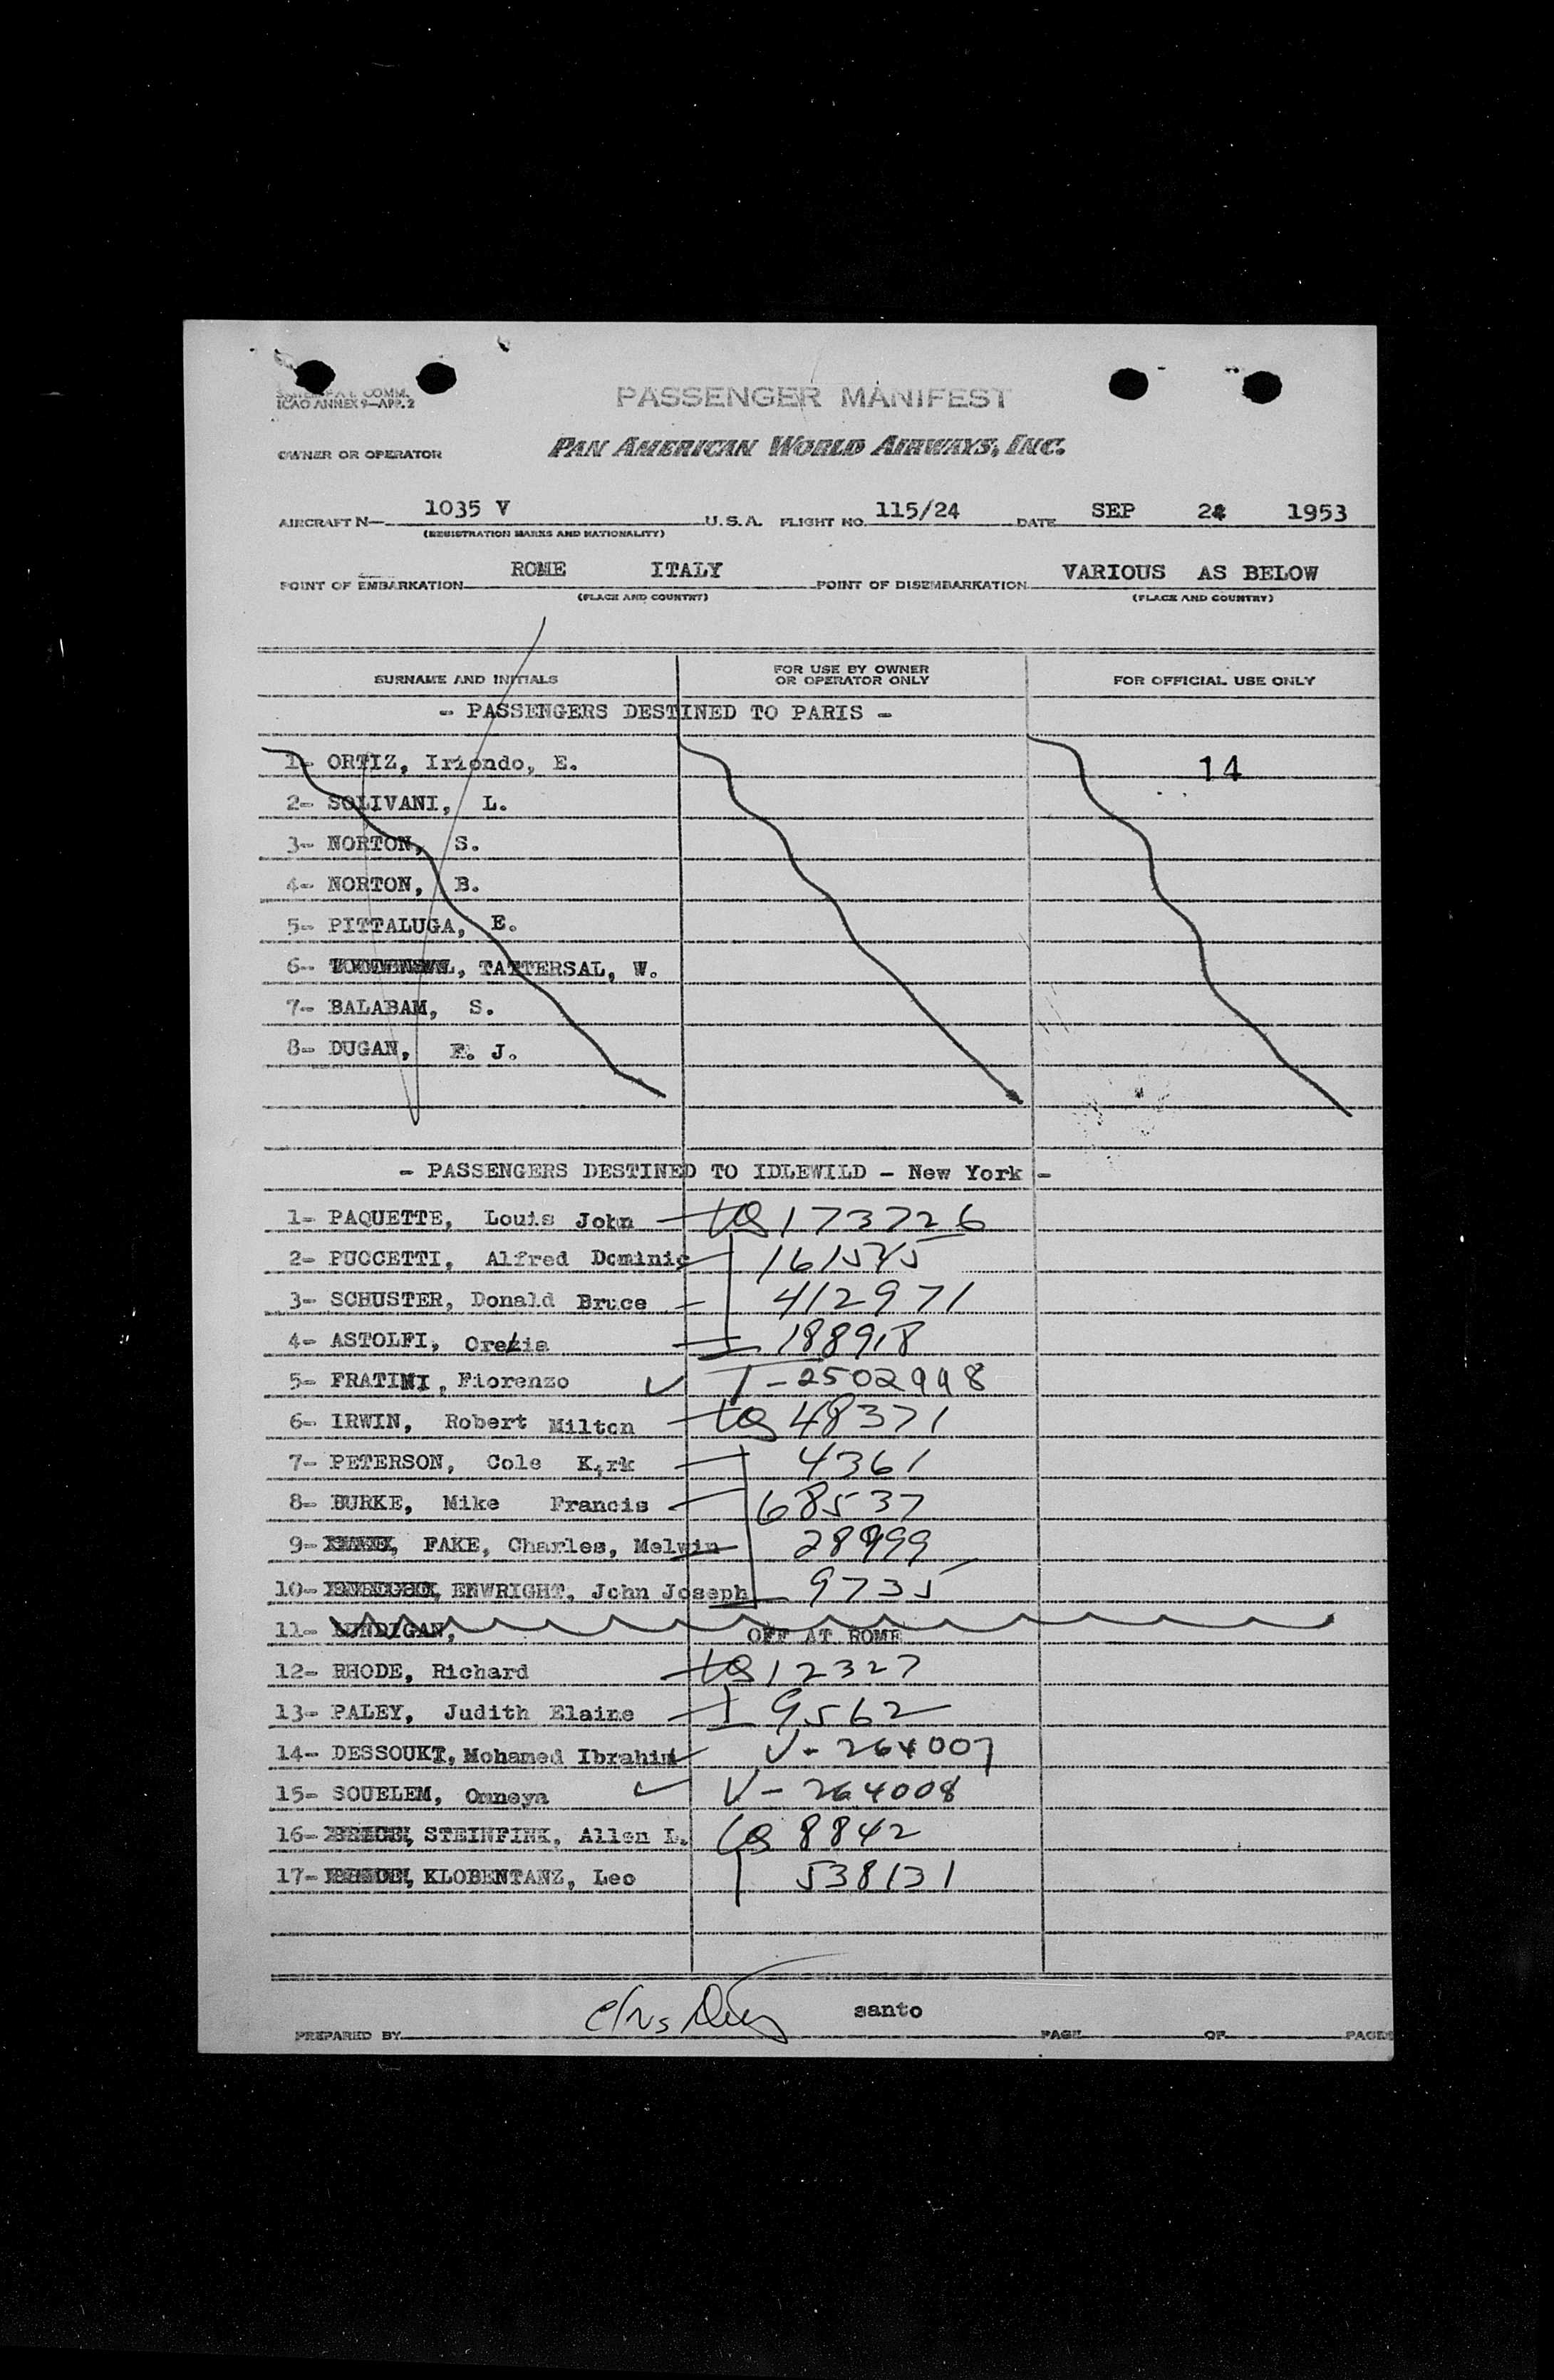 ICAO ANNEX 9—APP. 2
PASSENGER MANIFEST
OWNER OR OPERATOR PAN AMERICAN WORLD AIRWAYS, INC.
AIRCRAFT N— 1035 V U.S.A. FLIGHT NO. 115/24 DATE SEP 24 1953
(REGISTRATION MARKS AND NATIONALITY)
POINT OF EMBARKATION ROME ITALY POINT OF DISEMBARKATION VARIOUS AS BELOW
(PLACE AND COUNTRY) (PLACE AND COUNTRY)
SURNAME AND INITIALS FOR USE BY OWNER OR OPERATOR ONLY FOR OFFICIAL USE ONLY
- PASSENGERS DESTINED TO PARIS -
1- ORTIZ, Iriondo, E. 14
2- SOLIVANI, L.
3- NORTON, S.
4- NORTON, B.
5- PITTALUGA, E.
6- TATTERSAL, W.
7- BALABAM, S.
8- DUGAN, F. J.
- PASSENGERS DESTINED TO IDLEWILD - New York -
1- PAQUETTE, Louis John 173726
2- PUCCETTI, Alfred Dominic 161545
3- SCHUSTER, Donald Bruce 412971
4- ASTOLFI, 188918
5- FRATINI, Fiorenzo T-2502998
6- IRWIN, Robert Milton 48371
7- PETERSON, Cole Kirk 4361
8- BURKE, Mike Francis 68537
9- FAKE, Charles, Melwin 28999
10- ENWRIGHT, John Joseph 9735
11- LUNDIGAN, OFF AT ROME
12- RHODE, Richard 12327
13- PALEY, Judith Elaine 9562
14- DESSOUKI, Mohamed Ibrahim V-264007
15- SOUELEM, Omneya V-264008
16- STEINFINK, Allen L. 8842
17- KLOBENTANZ, Leo 538131
santo
PREPARED BY PAGE OF PAGES